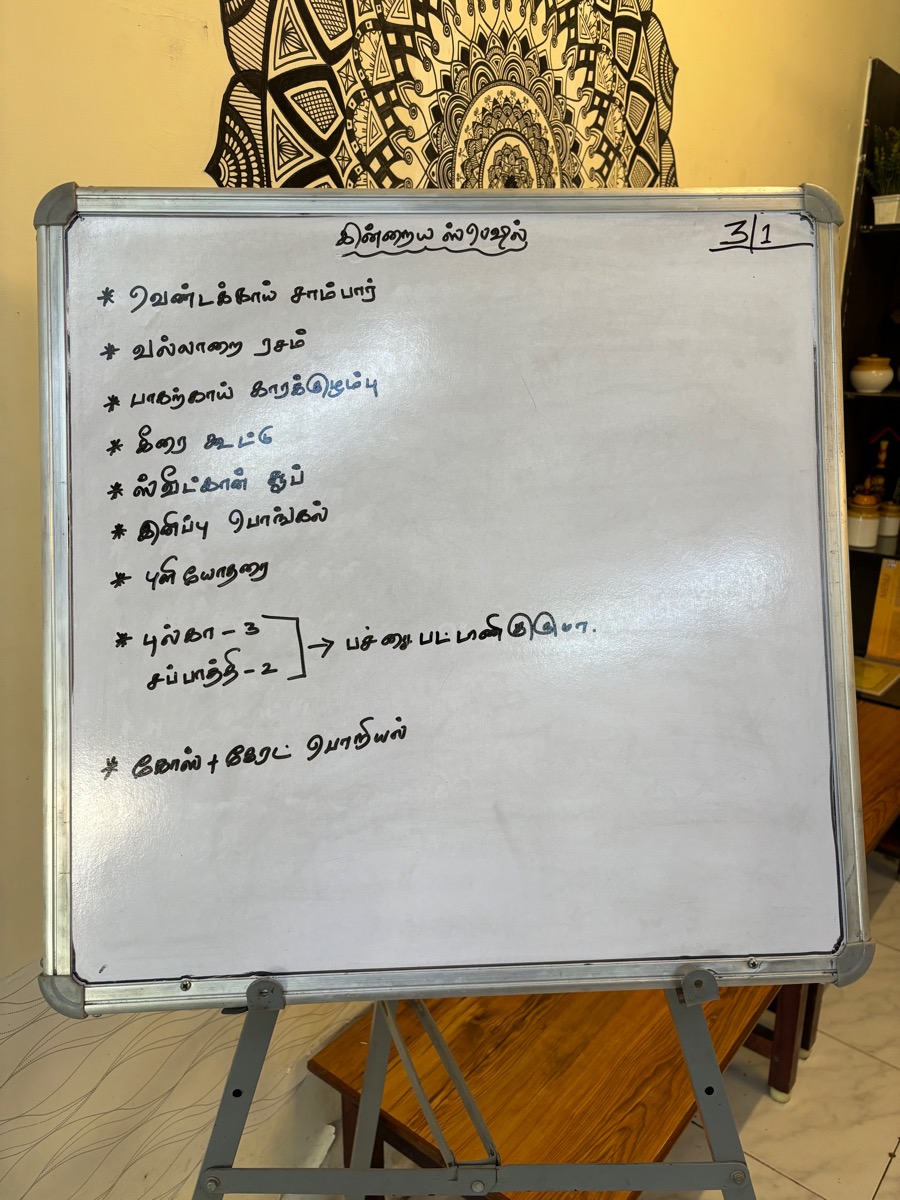 இன்றைய ஸ்பெஷல்
3/1
* வெண்டக்காய் சாம்பார்
* வல்லாறை ரசம்
* பாகற்காய் காரக்குழம்பு
* கீரை கூட்டு
* ஸ்வீட்கான் சூப்
* இனிப்பு பொங்கல்
* புளியோதரை
* புல்கா - 3 → பச்சை பட்டாணி குருமா.
சப்பாத்தி - 2
* கோஸ் + கேரட் பொறியல்